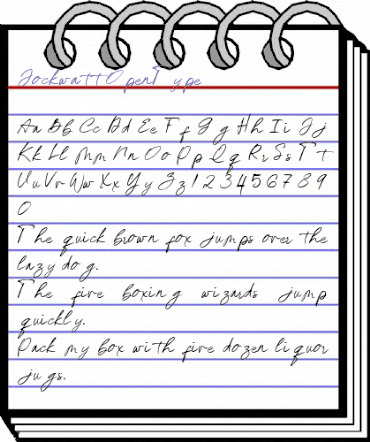 Jockwatt OpenType
Aa Bb Cc Dd Ee Ff Gg Hh Ii Jj
Kk Ll Mm Nn Oo Pp Qq Rr Ss Tt
Uu Vv Ww Xx Yy Zz 1 2 3 4 5 6 7 8 9
0
The quick brown fox jumps over the
lazy dog.
The five boxing wizards jump
quickly.
Pack my box with five dozen liquor
jugs.